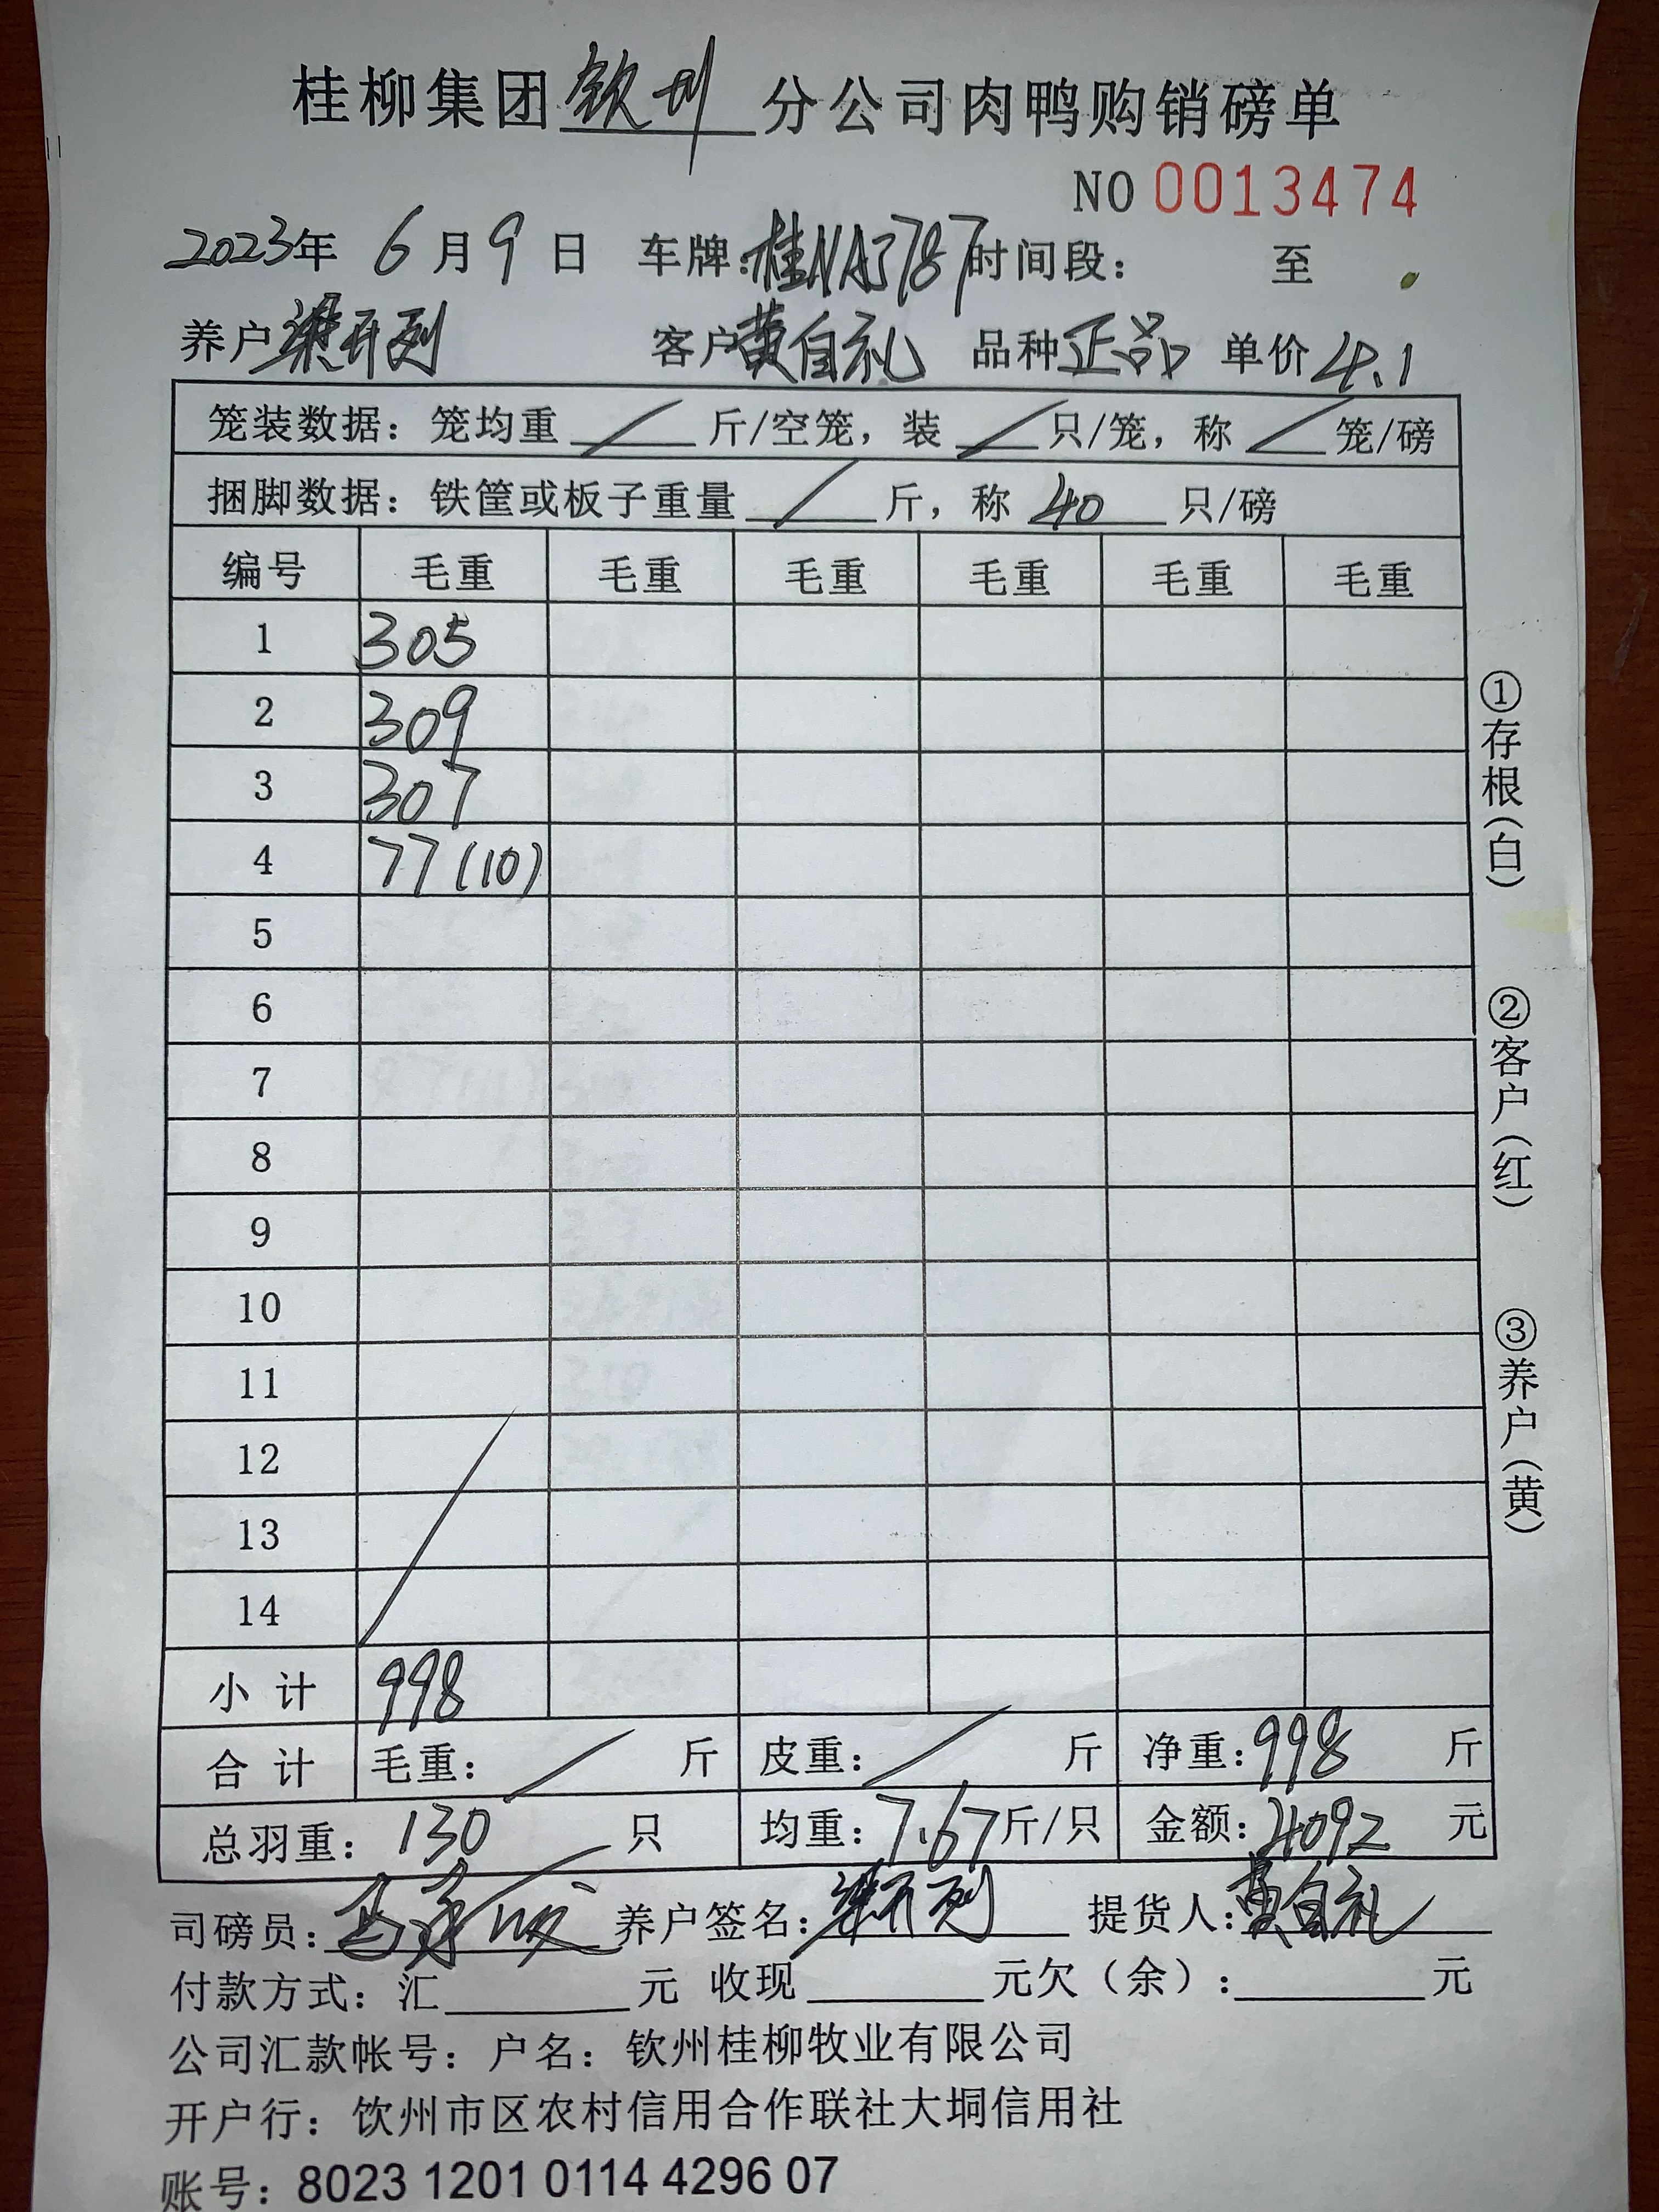 桂柳集团钦州分公司肉鸭购销磅单
NO 0013474
2023年 6月9日 车牌:桂NA3787时间段: 至
养户梁开列 客户黄自礼 品种正品 单价4.1
笼装数据: 笼均重 / 斤/空笼, 装 / 只/笼, 称 / 笼/磅
捆脚数据: 铁筐或板子重量 / 斤, 称 40 只/磅
编号 毛重 毛重 毛重 毛重 毛重 毛重
1 305
2 309
3 307
4 77(10)
5
6
7
8
9
10
11
12
13
14
小计 998
合计 毛重: / 斤 皮重: / 斤 净重:998 斤
总羽重: 130 只 均重:7.67斤/只 金额:4092 元
司磅员: 养户签名:梁开列 提货人:黄自礼
付款方式: 汇 元 收现 元欠(余): 元
公司汇款帐号: 户名: 钦州桂柳牧业有限公司
开户行: 钦州市区农村信用合作联社大垌信用社
账号: 8023 1201 0114 4296 07
①存根(白)
②客户(红)
③养户(黄)